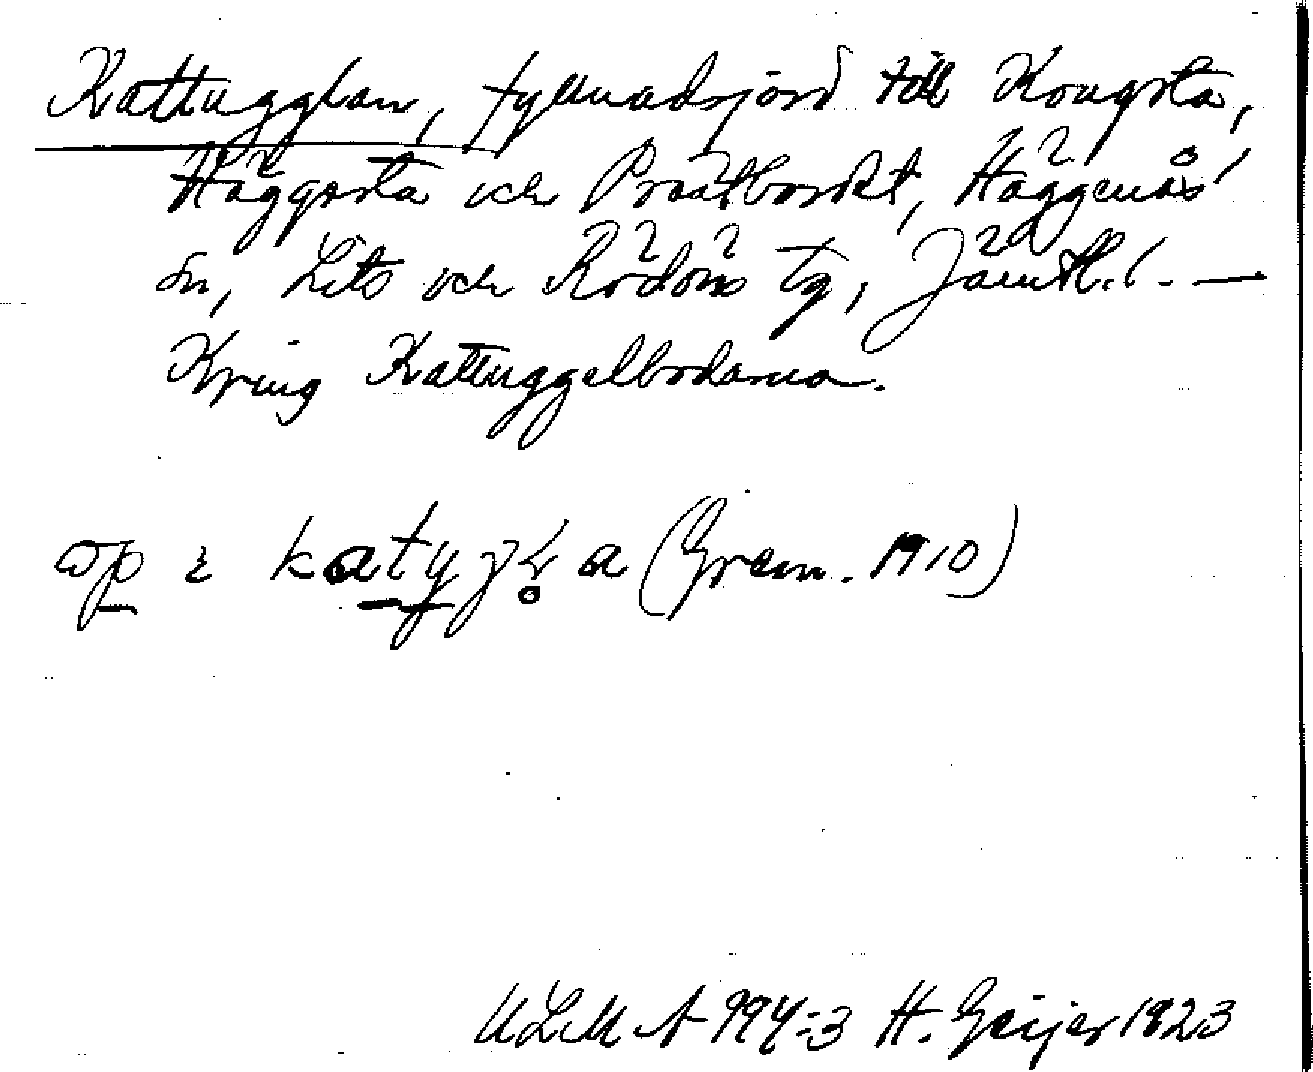 Kattugglan, fyllnadsjord till Kougsta,
Häggsta och Prästbordet, Häggenås
sn, Lits och Rödöns tg, Jämtl. l. —
Kring Kattuggelbodarna.
katy
(Gram. 1910)
ULMA 994:3 H. Geijer 1923